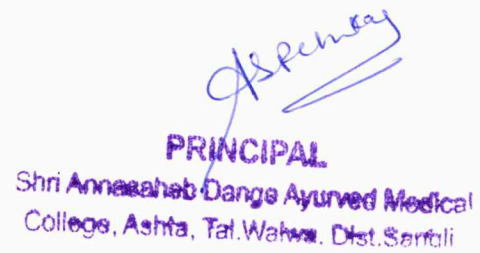 PRINCIPAL
Shri Annasaheb Dange Ayurved Medical
College, Ashta, Tal.Walwa. Dist.Sangli